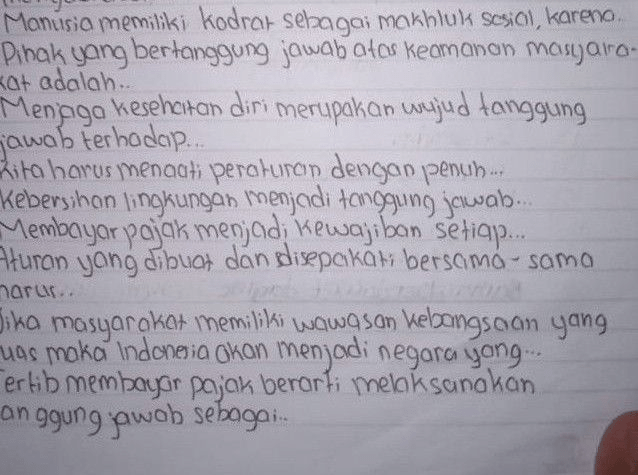 Manusia memiliki kodrat sebagai makhluk sosial, karena..
Pihak yang bertanggung jawab atas keamanan masyara-
kat adalah..
Menjaga kesehatan diri merupakan wujud tanggung
jawab terhadap...
Kita harus menaati peraturan dengan penuh...
Kebersihan lingkungan menjadi tanggung jawab...
Membayar pajak menjadi kewajiban setiap...
Aturan yang dibuat dan disepakati bersama-sama
harus...
Jika masyarakat memiliki wawasan kebangsaan yang
luas maka Indonesia akan menjadi negara yang...
Tertib membayar pajak berarti melaksanakan
tanggung jawab sebagai..